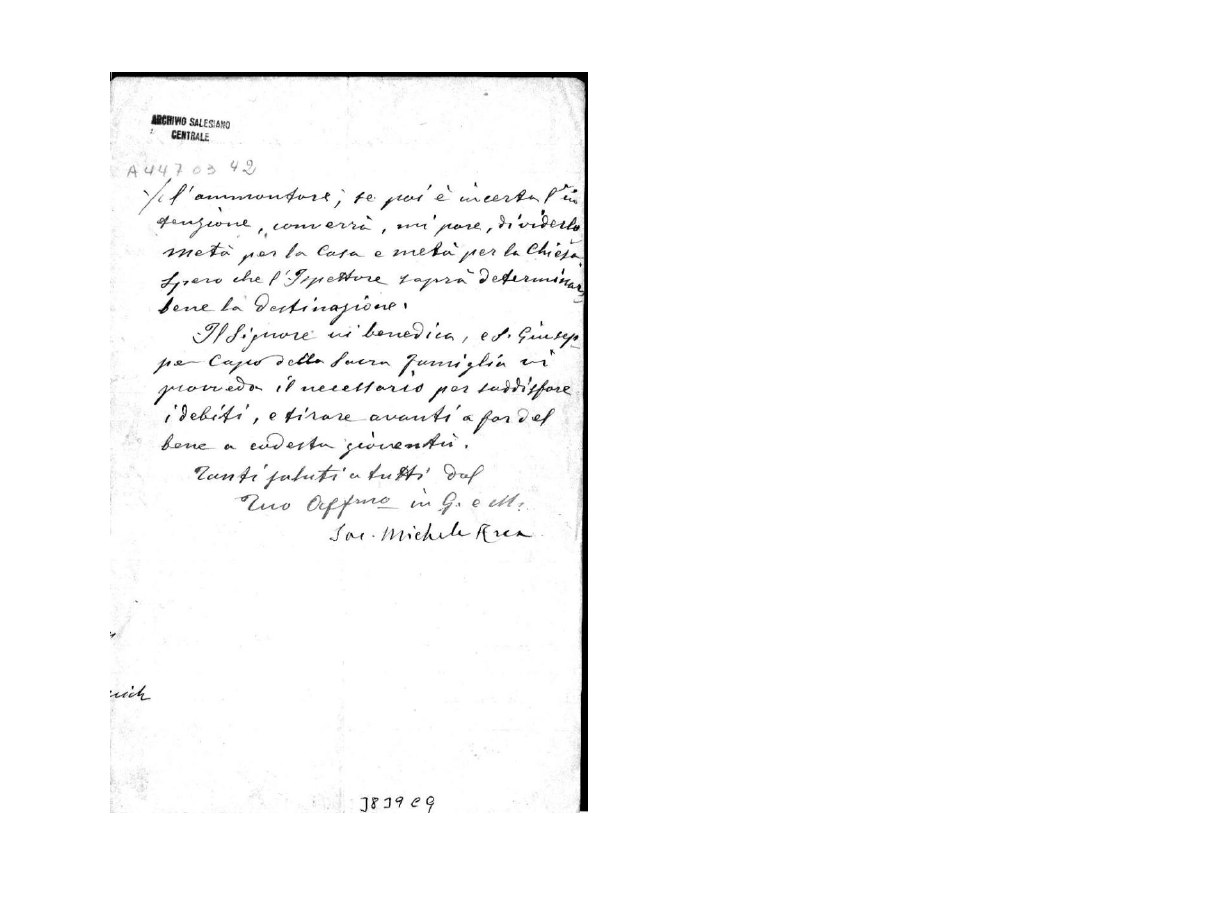 ARCHIVIO SALESIANO
CENTRALE
A447 03 42
l'ammontare; se poi è incerta l'in
tenzione, converrà, mi pare, dividerlo
metà per la Casa e metà per la Chiesa
Spero che l'Ispettore saprà determinare
bene la destinazione.
Il Signore vi benedica, e S. Giusep
pe Capo della Sacra Famiglia vi
provveda il necessario per soddisfare
i debiti, e tirare avanti a far del
bene a codesta gioventù.
Tanti saluti a tutti dal
Tuo Affmo in G. e M.
Sac. Michele Rua